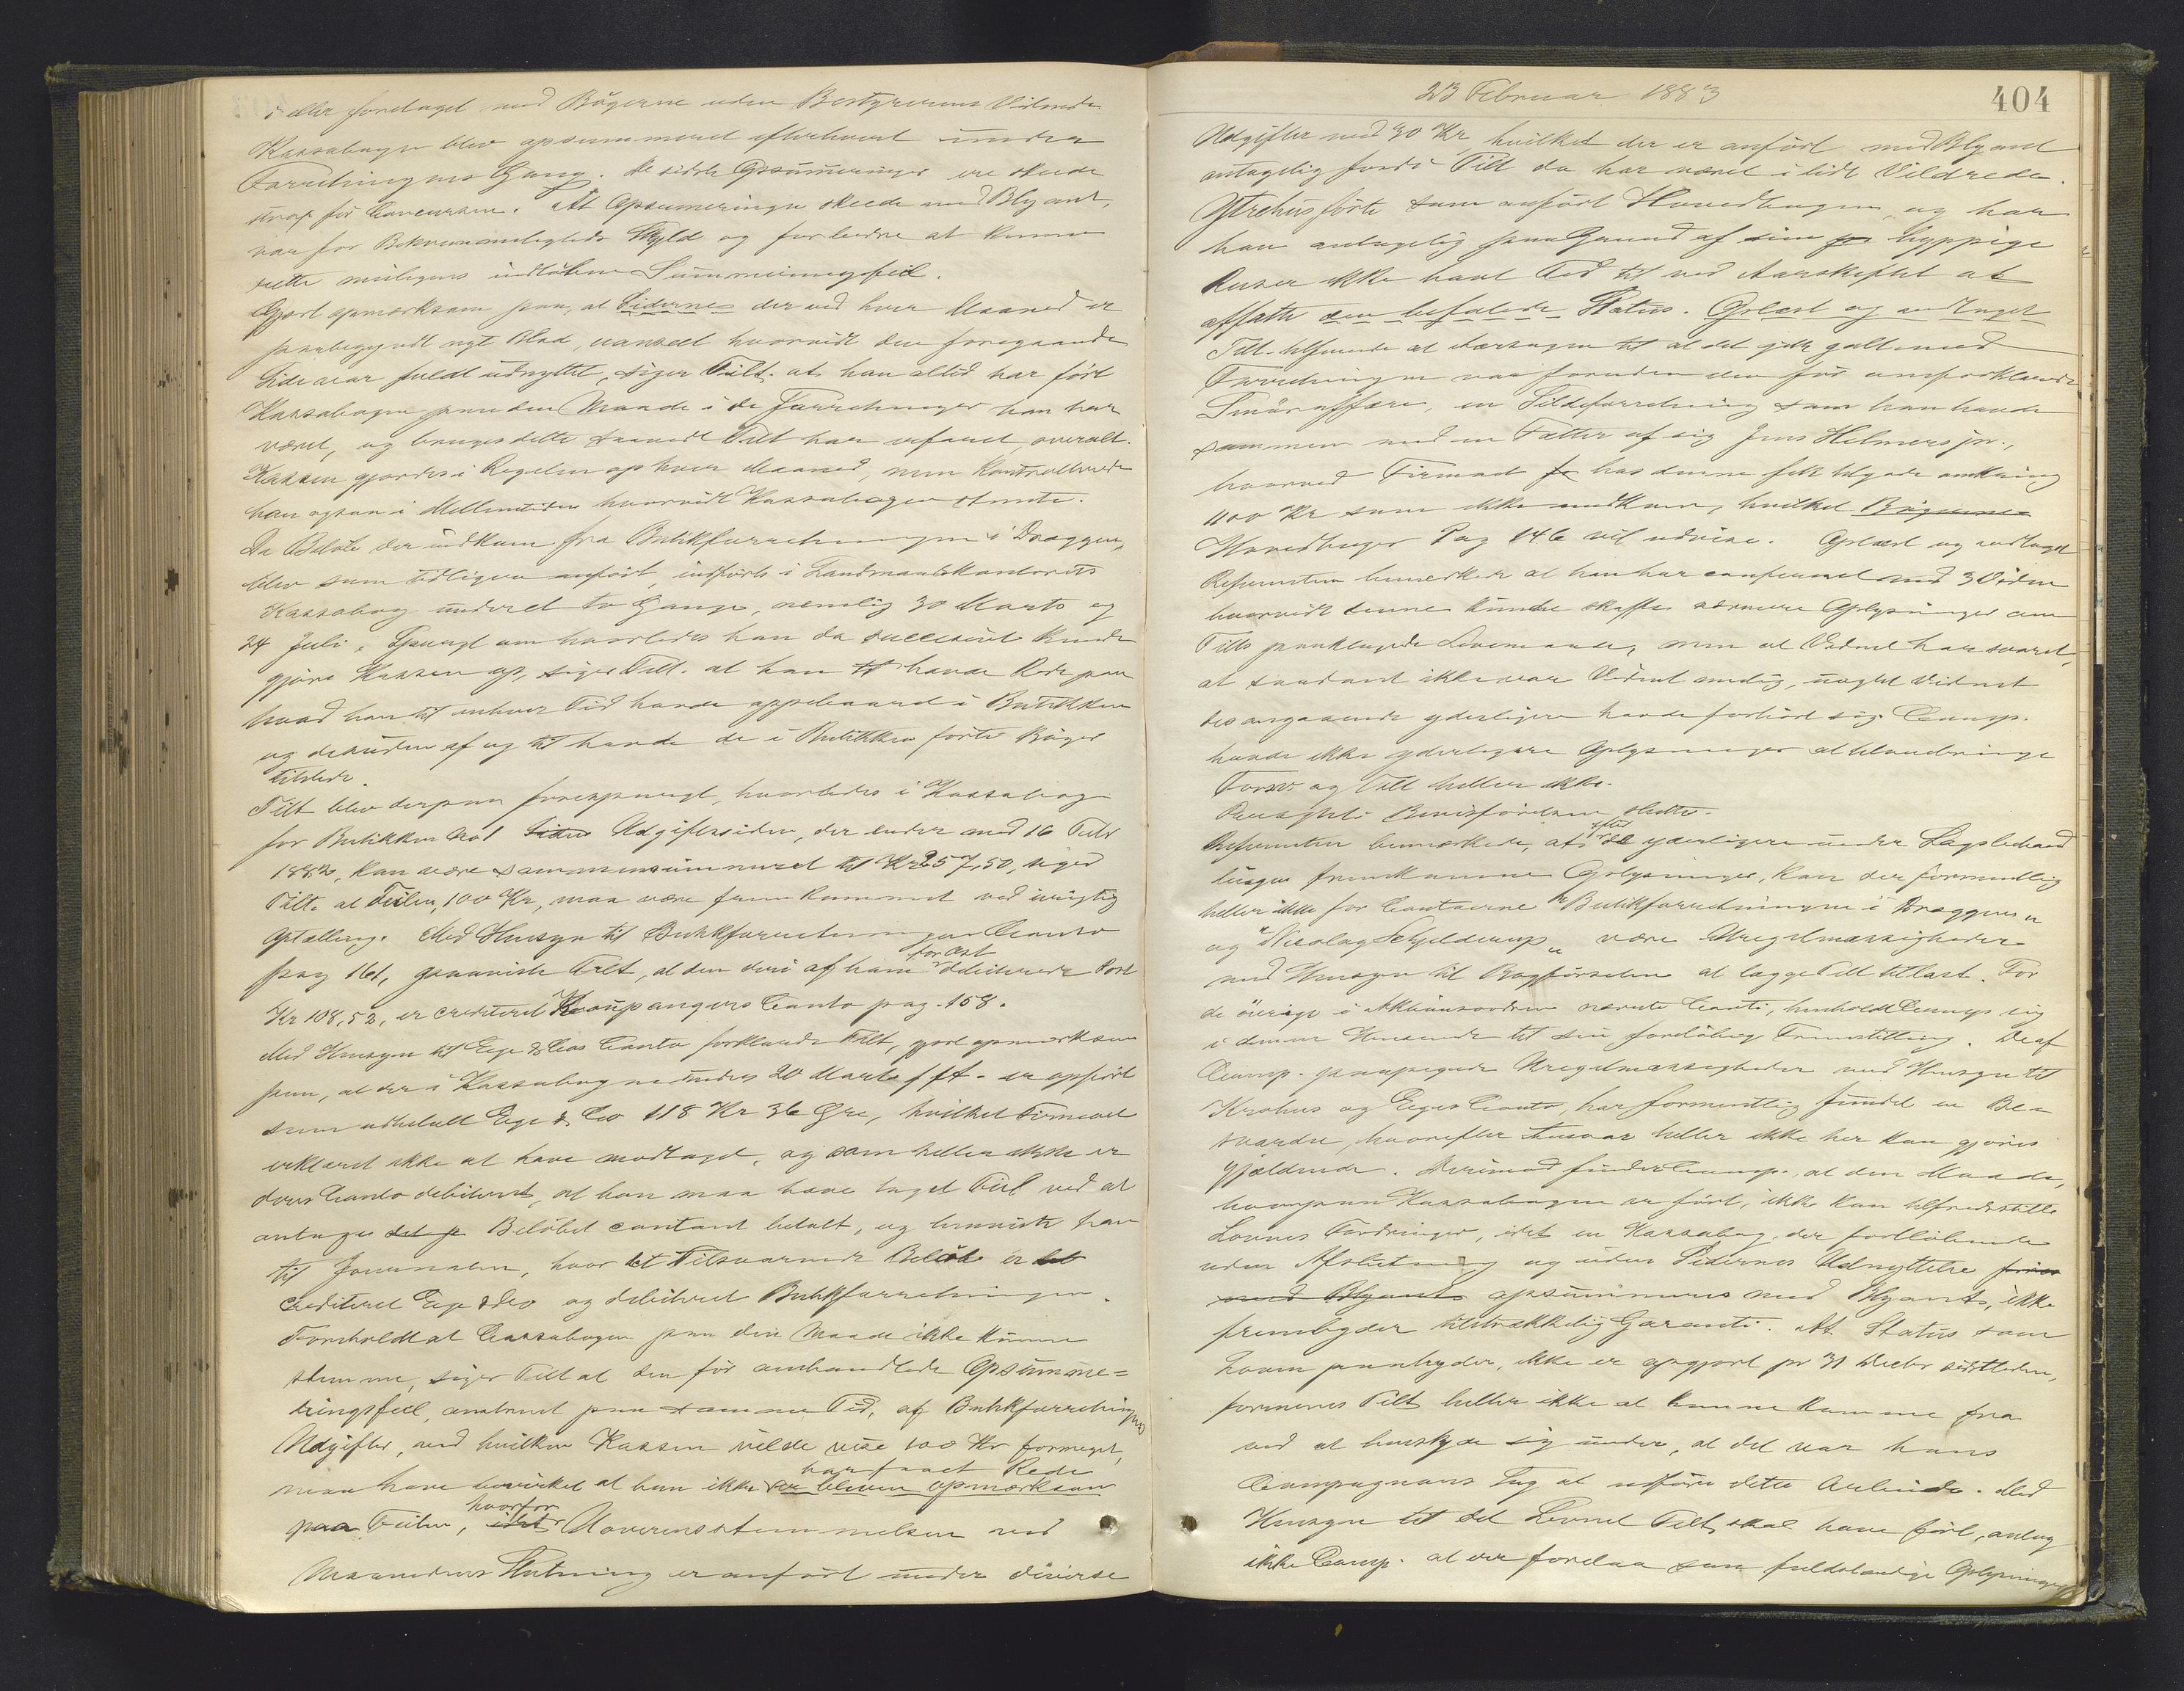 i eller foretaget med Bøgerne uden Bestyrerens Vidende
Kassabogen blev opsummeret efterhvert under
Forretningens Gang. De sidste Opsummeringer ere skeede
strax før Concursen. At Opsumeringen skeede med Blyant,
var for Bekvemmeligheds Skyld og for bedre at kunne
rette muligens indløbne Summeringsfeil.
Gjort opmærksom paa, at Siderne der ved hver Maaned er
paabegyndt nyt Blad, uanseet hvorvidt den foregaaende
Side var fuldt udnyttet, siger Tilt. at han altid har ført
Kassabogen paa den Maade i de Forretninger han har
været, og bruges dette saavidt Tilt har erfaret overalt.
Kassen gjordes i Regelen op hver Maaned, men kontrollerede
han ogsaa i Mellemtiden hvorvidt Kassabogen stemte.
De Beløb der indkom fra Butikforretningen i Dræggen,
blev som tidligere anført, indførte i Landmandskontorets
Kassabog underet to Gange, nemlig 30 Marts og
24 Juli. Spurgt om hvorledes han da successivt kunde
gjøre Kassen op, siger Tilt. at han havde Rede paa
hvad han til enhver Tid havde oppebaaret i Butikken
og desuden af og til havde de i Butikken førte Bøger
tilstede.
Tilt blev derpaa forespurgt, hvorledes i Kassabog
for Butikken No 1 Sidee Udgiftssiden, der ender med 16 Febr
1882, kan være sammensummeret til Kr 257,50, siger
Tilt. at Feilen, 100 Kr, maa være fremkommet ved urigtig
Optælling. Med Hensyn til Butikforretningens Conto
pag 161, paaviste Tilt, at den deri af ham for Ost debiterede Post
Kr 108,52, er crediteret Kaupangers Conto pag. 158.
Med Hensyn til Ege & Cos Conto forklarede Tilt, gjort opmærksom
paa, at der i Kassabog er under 20 Marts f ft. er opført
som udbetalt Ege & Co 118 Kr 36 Øre, hvilket Firmaet
erklæret ikke at have modtaget, og som heller ikke er
deres Conto debiteret, at han maa have taget Feil ved at
antage Beløbet contant betalt, og henviste han
til Journalen, hvor et tilsvarende Beløb er
crediteret Ege & Co og debiteret Butikforretningen.
Foreholdt at Cassabogen paa den Maade ikke kunne
stemme, siger Tilt at den før omhandlede Opsumme=
ringsfeil, omtrent paa samme Tid, af Butikforretningens
Udgifter, ved hvilken Kassen vilde vise 100 Kr formeget,
maa have bevirket at han ikke har faaet Rede er bleven opmærksom
paa Feilen, hvorfor idet Uoverensstemmelsen ved
Maanedens Slutning er anført under diverse
23 Februar 1883
404
Udgifter med 30 Kr, hvilket der er anført med Blyant
antagelig fordi Tilt da har været i lidt Vildrede.
Ytrehus førte som anført Hovedbogen, og har
han antagelig paa Grund af sine hyppige
Reiser ikke havt Tid til ved Aarskiftet at
affatte den befalede Status. Oplæst og vedtaget
Tilt. tilføiede at Aarsagen til at det gik galt med
Forretningen var foruden den før omforklarede
Smøraffære, en Sildeforretning som han havde
sammen med en Fætter af sig Jens Helmers jr.,
hvorved Firmaet hos denne fik tilgode omkring
400 Kr som ikke indkom, hvilket Bøgerne
Hovedbogen Pag 146 vil udvise. Oplæst og vedtaget
Referenten bemærkede at han har confereret med 3 Vidne
hvorvidt denne kunde skaffe nærmere Oplysninger om
Tilts paaklagede Levemaade, men at Vidnet har svaret,
at saadant ikke var Vidnet muligt, uagtet Vidnet
desangaaende yderligere havde forhørt sig. Comp.
havde ikke yderligere Oplysninger at tilveiebringe
Forsv og Tilt heller ikke.
Bevisførelsen sluttet.
Referenten bemærkede, at efter de yderligere under Sagsbehand
lingen fremkomne Oplysninger, kan der formentlig
heller ikke for Contoerne "Butikforretningen i Dræggen"
og "Nicolay Schjelderup" være Uregelmæssigheder
med Hensyn til Bogførselen at lægge Tilt tillast. For
de øvrige i Aktionsordren nævnte Conti, henholdt Comp sig
i denne Henseende til sin foreløbig Fremstilling. De af
Comp. paapegede Uregelmæssigheder med Hensyn til
Krohns og Eges Conto, har formentlig fundet en Be-
svarelse, hvorefter Ansvar heller ikke her kan gjøres
gjældende. Derimod finder Comp. at den Maade,
hvorpaa Kassabogen er ført, ikke kan tilfredsstille
Lovens Fordringer, idet en Kassabog, der fortløbende
uden Afslutning og uden Sidernes Udnyttelse
med Blyants opsummeres med Blyant, ikke
frembyder tilstrækkelig Garanti. At Status som
Loven paabyder, ikke er opgjort pr 31 Decbr sidstleden,
formenes Tilt heller ikke at kunne komme fra
ved at henskyde sig under, at det var hans
Compagnons Sag at udføre dette Arbeide. Med
Hensyn til det Levnet Tilt skal have ført, antog
ikke Comp. at der forelaa saa fuldstændige Oplysninger